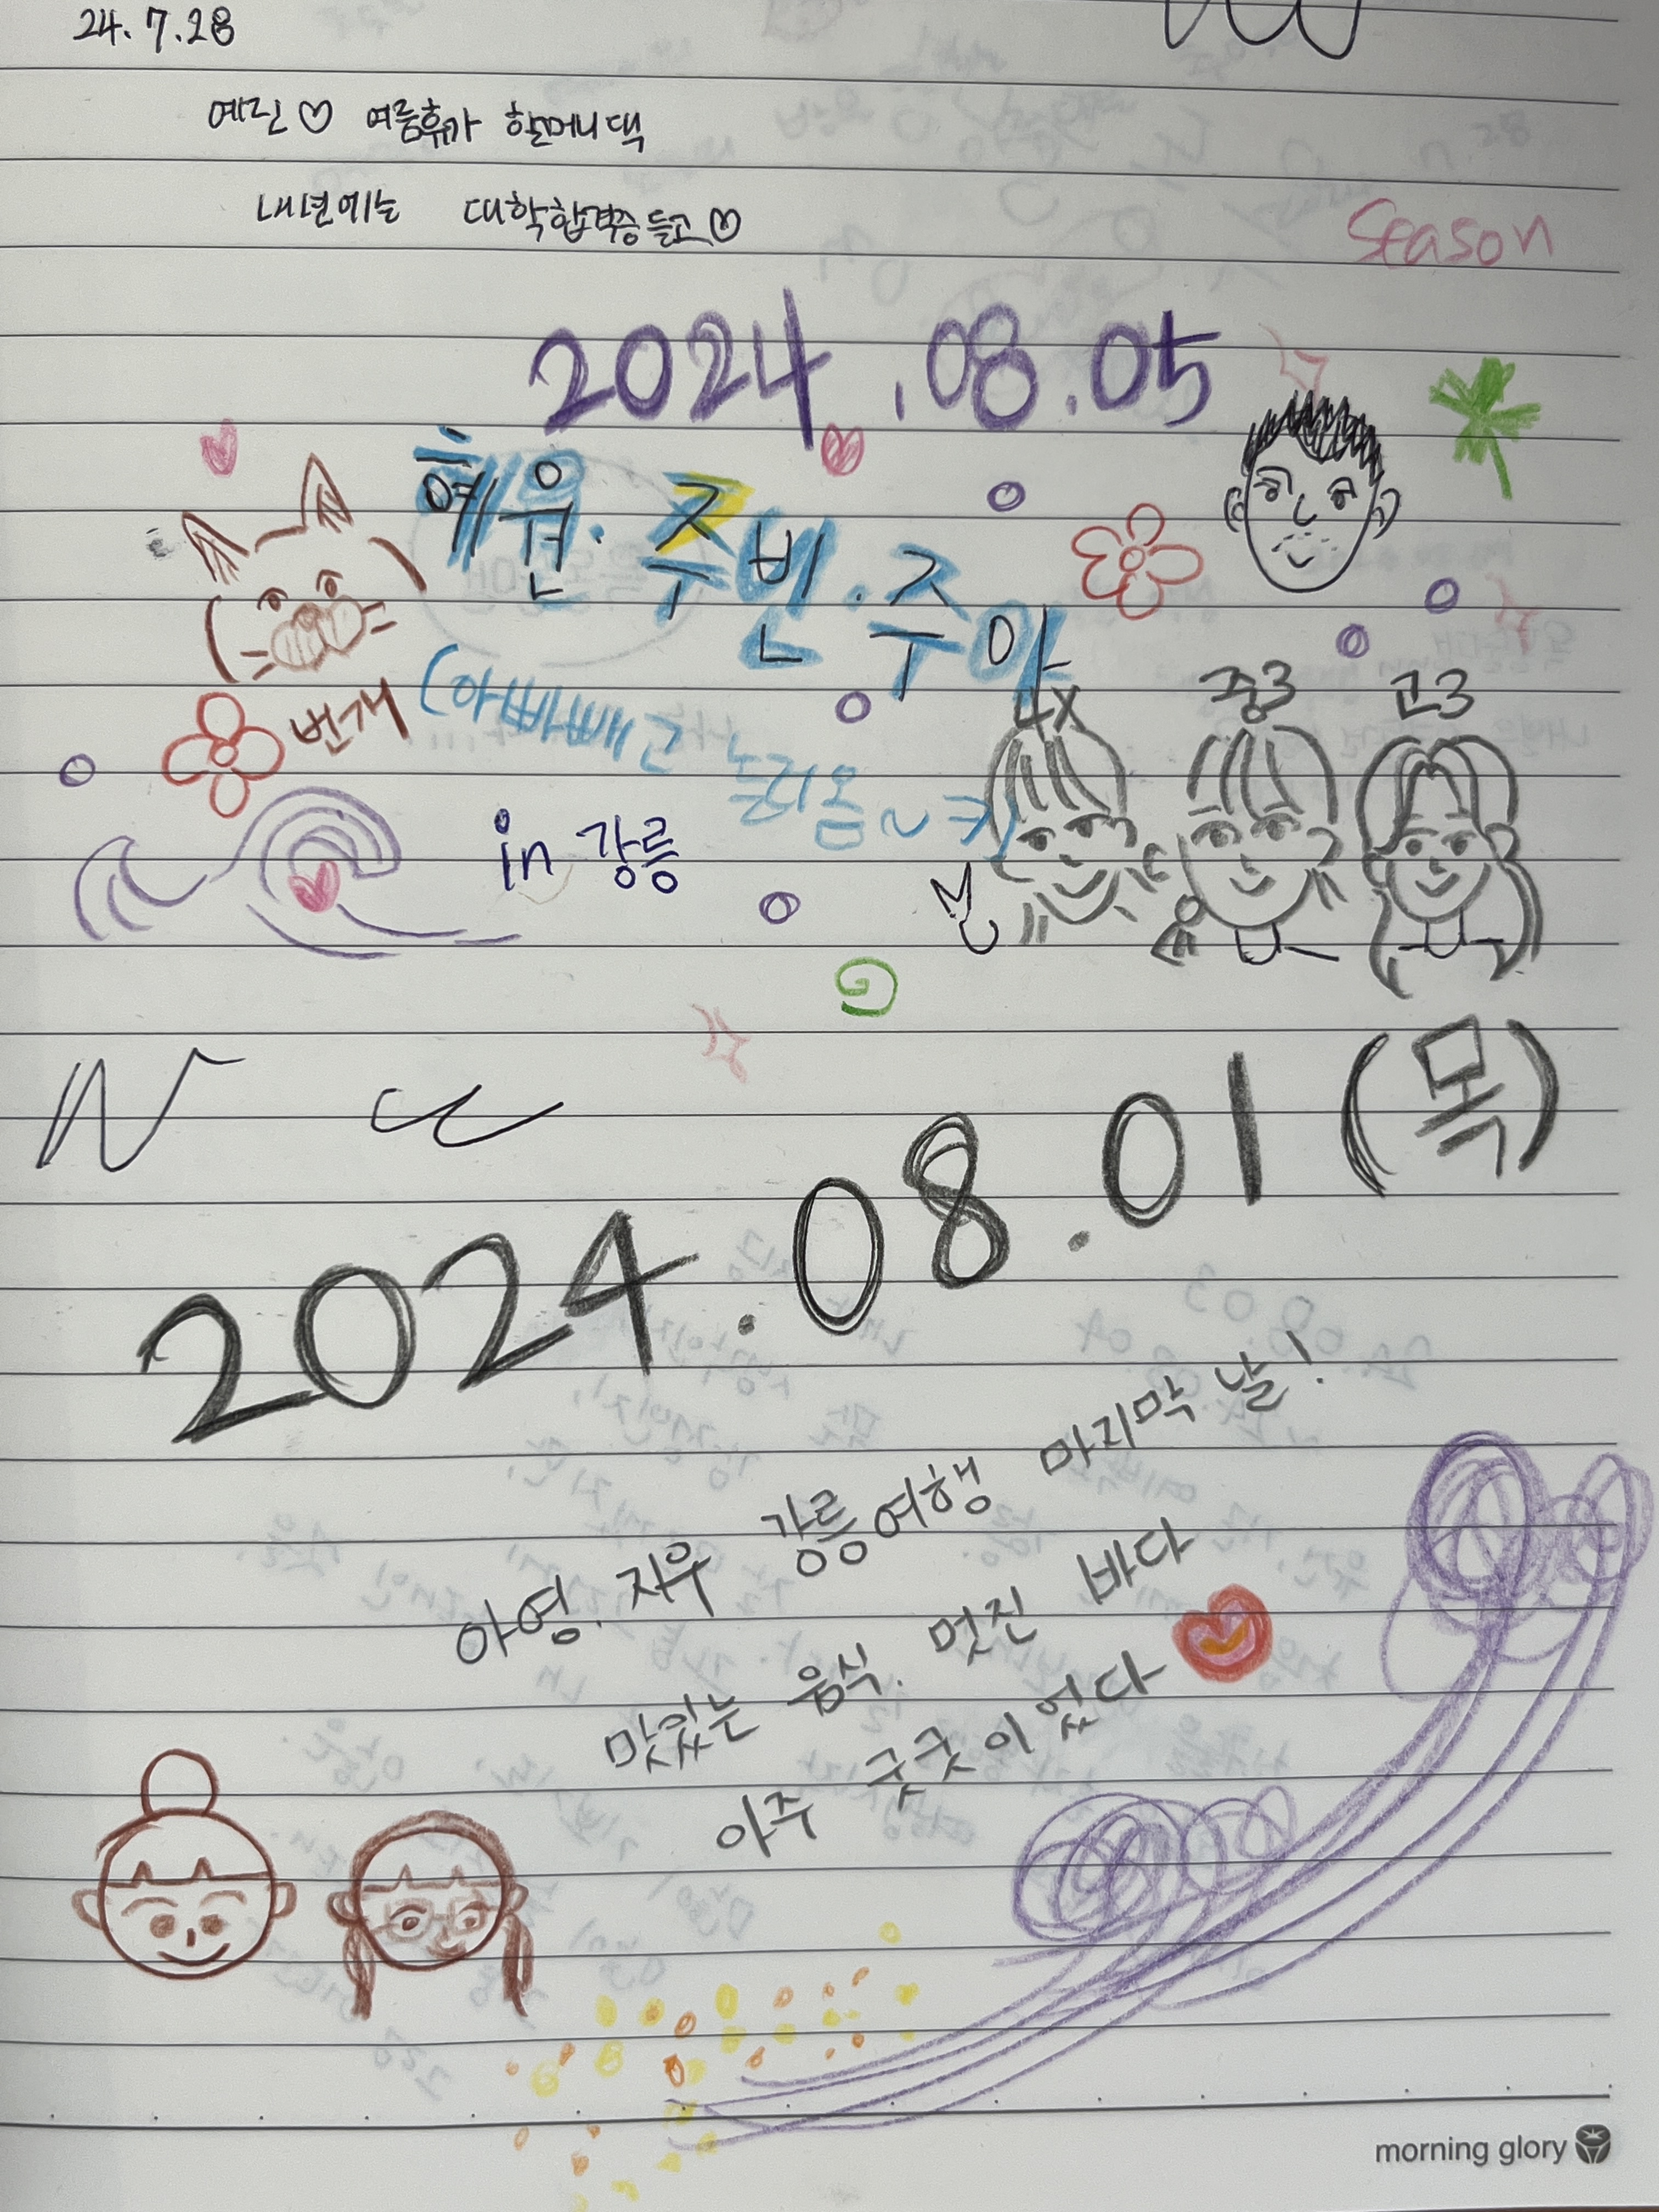 24.7.28
예린♡ 여름휴가 할머니댁
내년에는 대학합격증 들고♡
Season
2024.08.05
혜원·주빈·주아
번개 (아빠빼고 놀러옴~ㅋ)
in 강릉
4X 중3 고3
2024.08.01 (목)
아영. 지우 강릉여행 마지막 날!
맛있는 음식. 멋진 바다
아주 굿굿이었다
morning glory